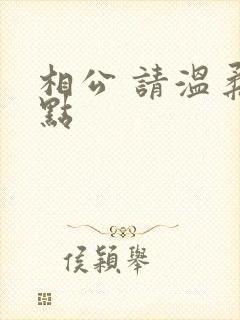 相公 請溫柔
點
侯穎舉